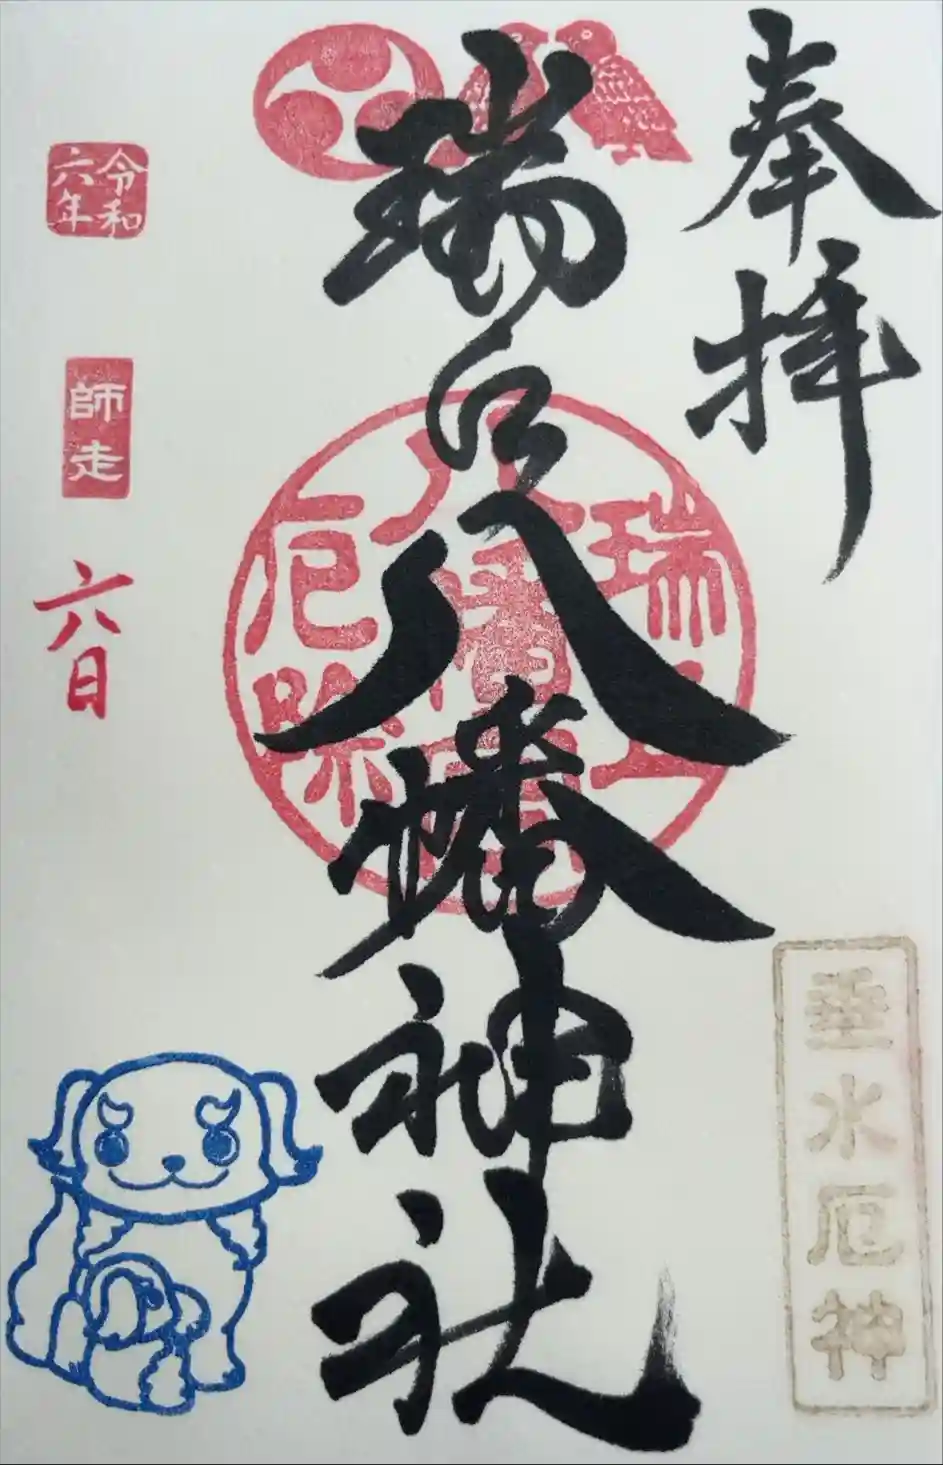 奉拝
垂水厄神
瑞丘八幡神社
瑞丘
厄除
令和
六年
師走
六日